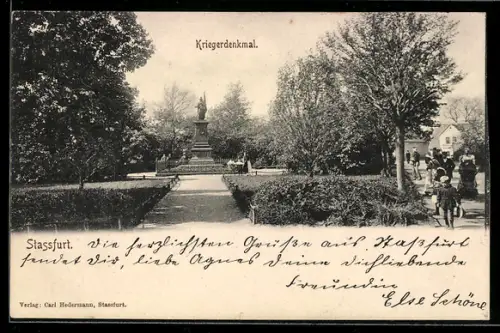 Kriegerdenkmal.
Stassfurt.
Die herzlichsten Grüße aus Staßfurt
sendet Dir, liebe Agnes Deine Dichliebende
Freundin
Else Schöne
Verlag: Carl Hedermann, Stassfurt.